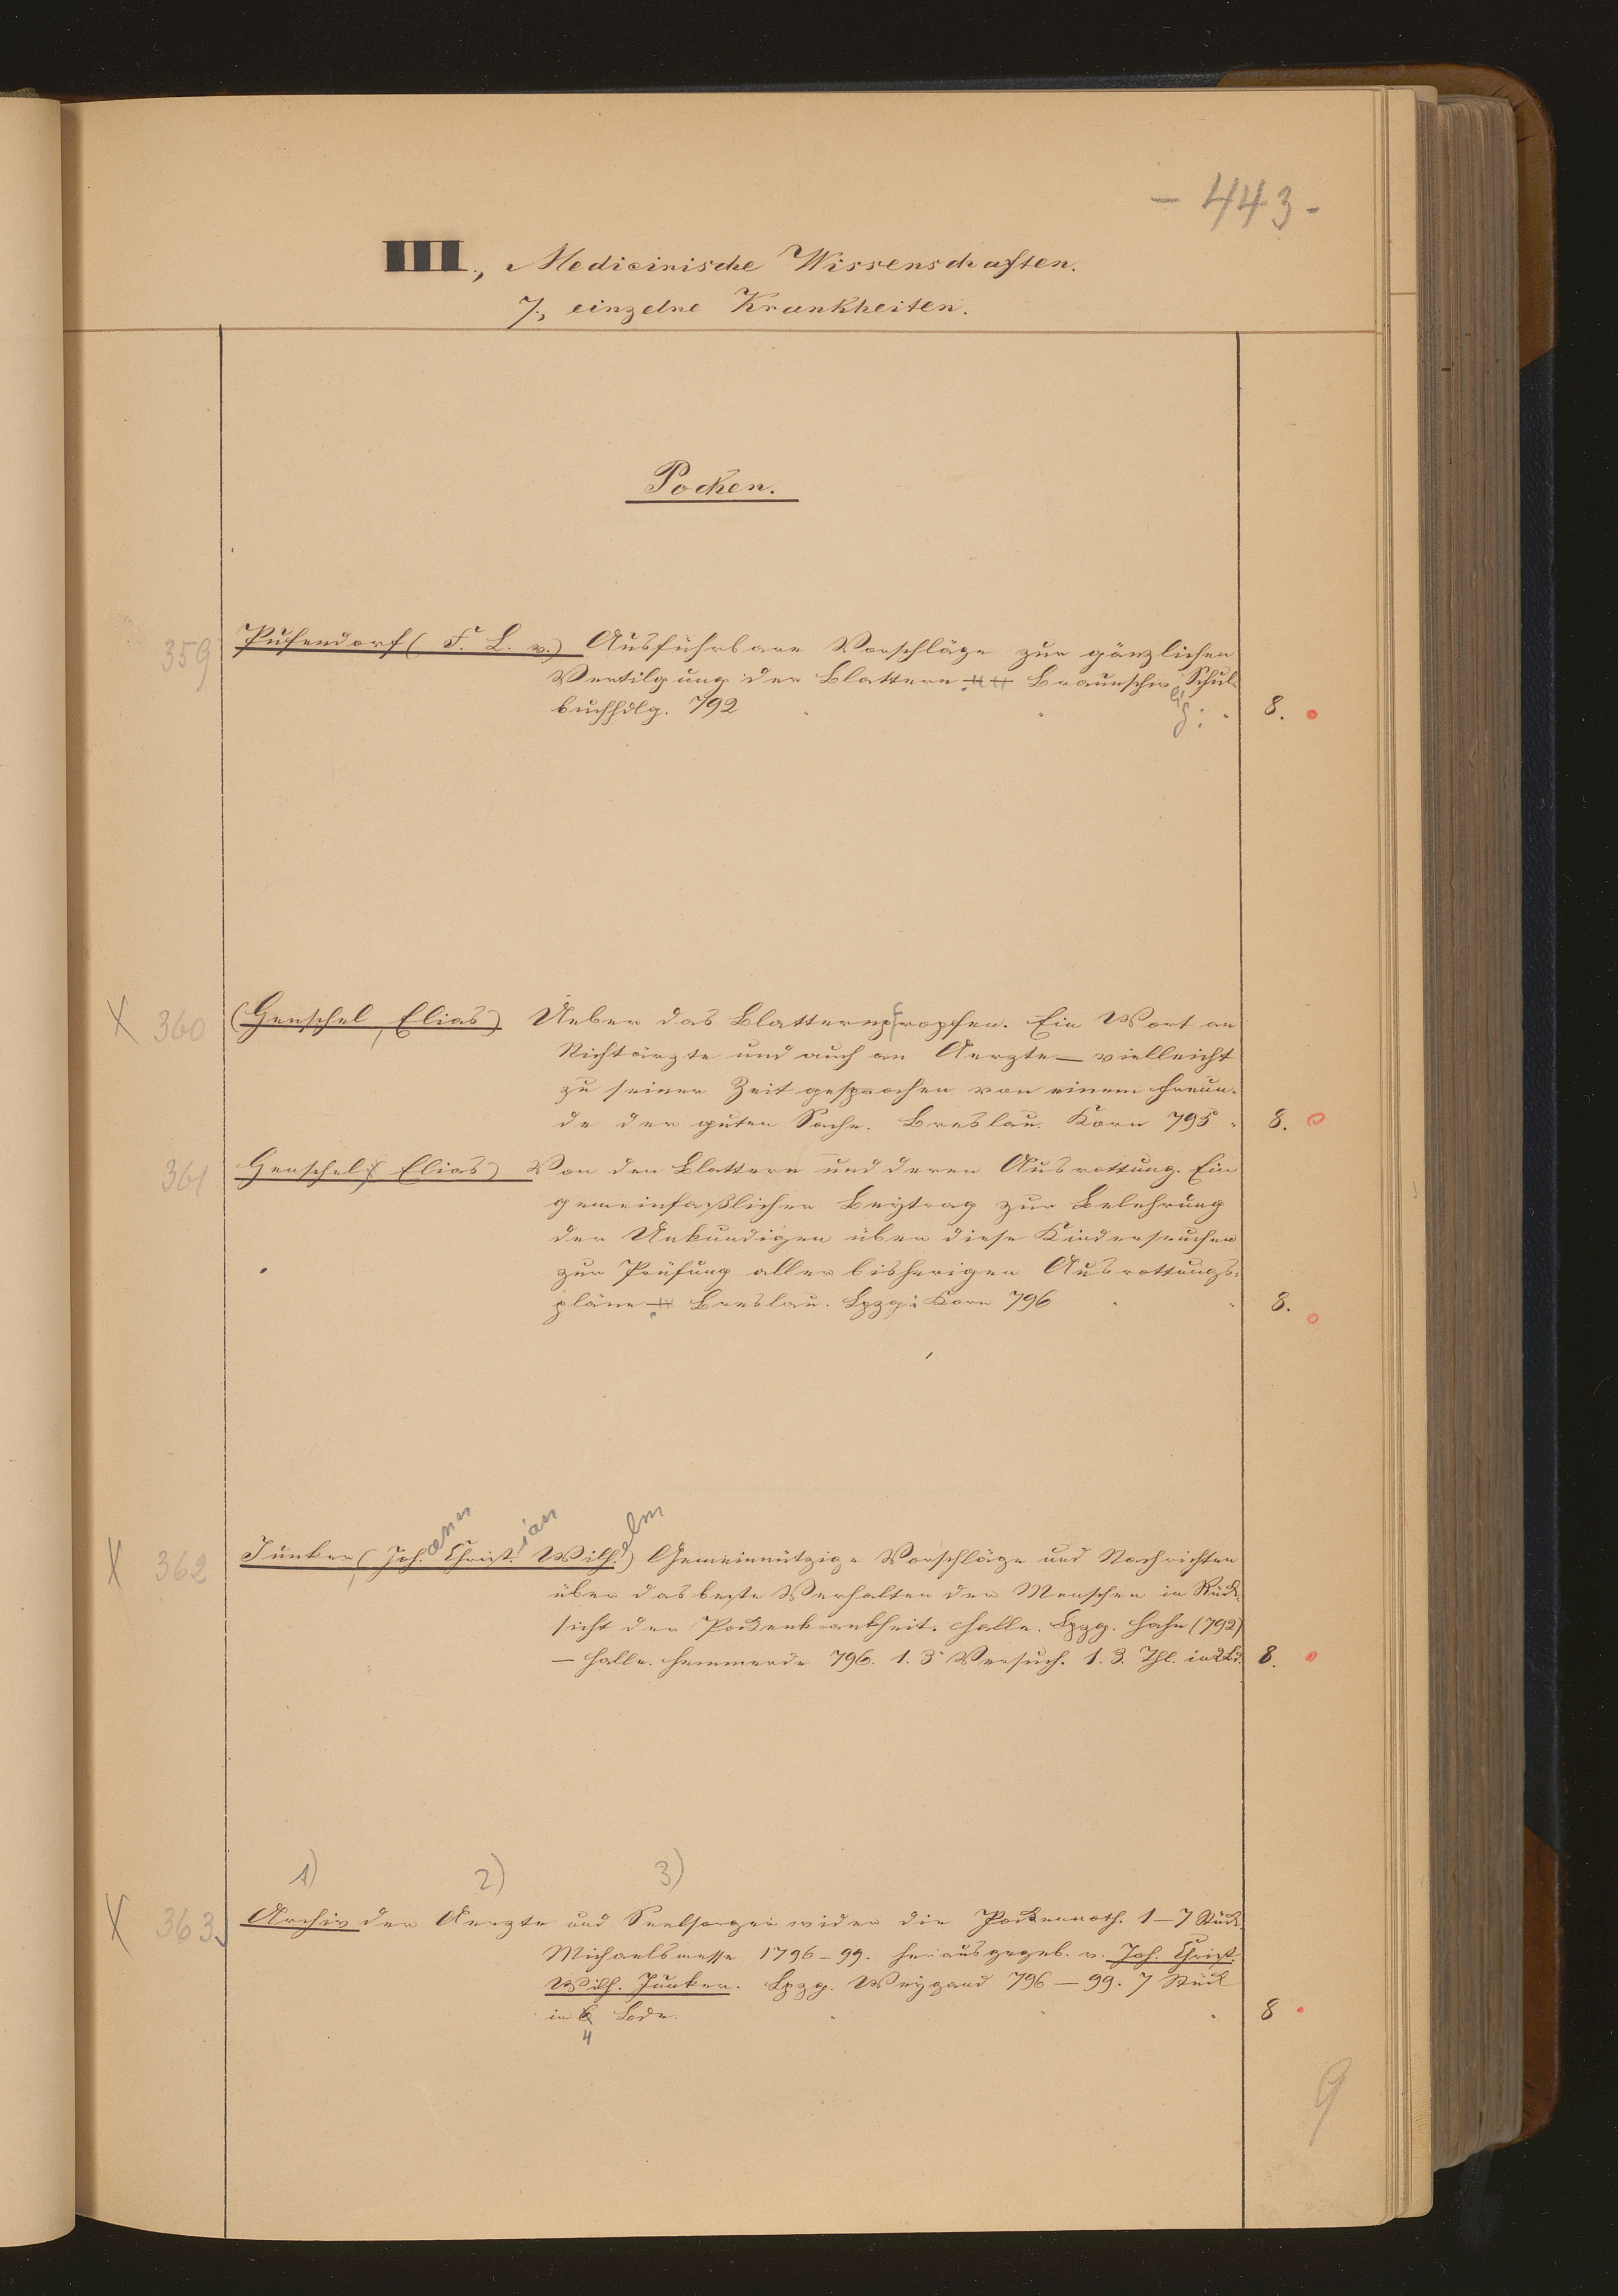 - 443 -
III., Medicinische Wissenschaften.
7., einzelne Krankheiten.
Pocken.
359 Pufendorf ( F. L. v.) Ausführbare Vorschläge zur gänzlichen
Vertilgung der Blattern Braunschweig: Schul-
buchhdlg. 792 8.
X 360 (Henschel, Elias) Ueber das Blatternpfropfen. Ein Wort an
Nichtärzte und auch an Aerzte — vielleicht
zu seiner Zeit gesprochen von einem Freun-
de der guten Sache. Breslau. Korn 795 8.
361 Henschel, Elias) Von den Blattern und deren Ausrottung. Ein
gemeinfaßlicher Beytrag zur Belehrung
der Unkundigen über diese Kinderseuchen
zur Prüfung aller bisherigen Ausrottungs-
pläne Breslau. Lpzg: Korn 796 8.
X 362 Junker, (Johann Christian Wilhelm) Gemeinnützige Vorschläge und Nachrichten
über das beste Verhalten der Menschen in Rück-
sicht der Pockenkrankheit. Halle. Lpzg. Hahn (792)
— Halle. Hemmerde 796. 1. 3r Versuch. 1. 3. Thl. in 2 Bd. 8.
1) 2) 3)
X 363. Archiv der Aerzte und Seelsorger wider die Pockennoth. 1–7 Stück
Michaelsmesse 1796–99. herausgegeb. v. Joh. Christ.
Wilh. Junker. Lpzg. Weygand 796 — 99. 7 Stück
in 4 Bde. 8
9